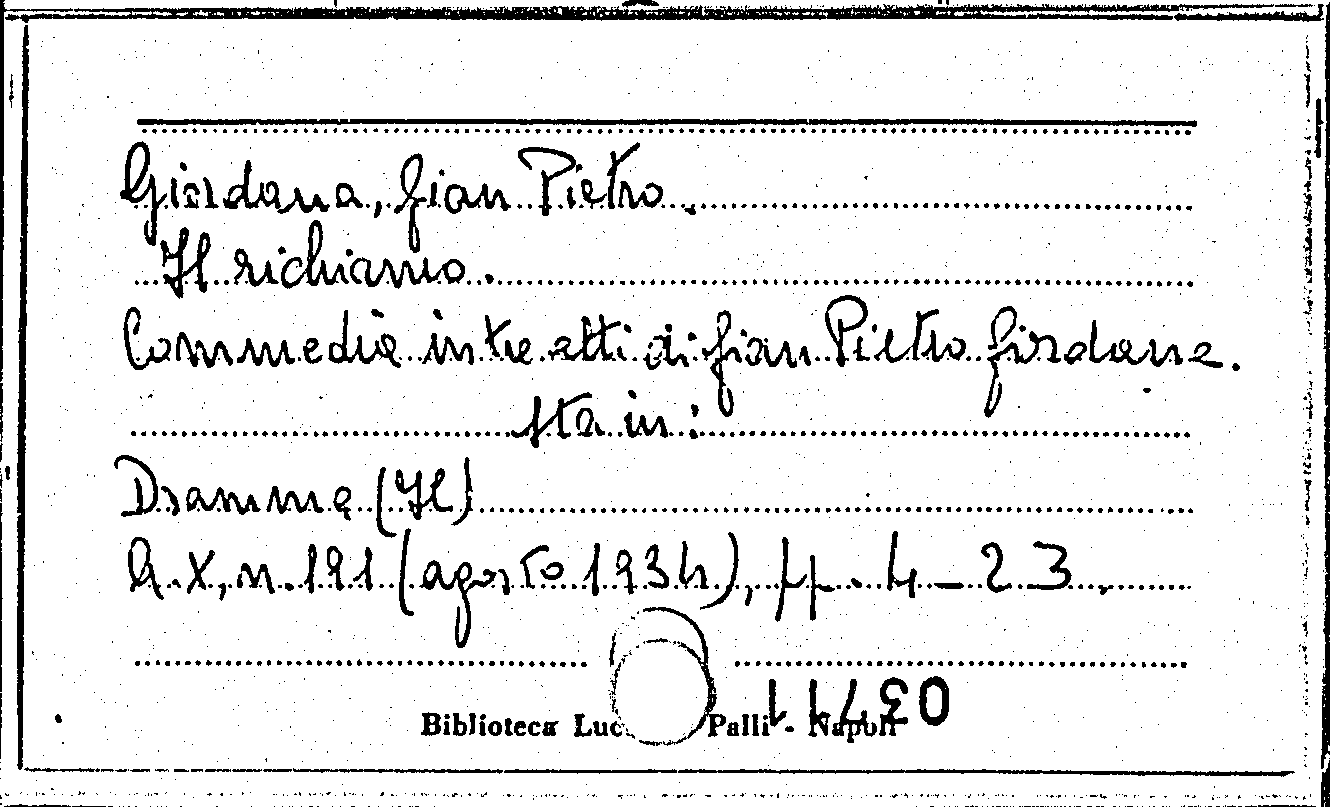 Giordana, Gian Pietro.
Il richiamo.
Commedia in tre atti di Gian Pietro Giordana.
Sta in:
Dramma (Il)
A. X, n. 191 (agosto 1934), pp. 4-23.
03711
Biblioteca Luc Palli - Napoli